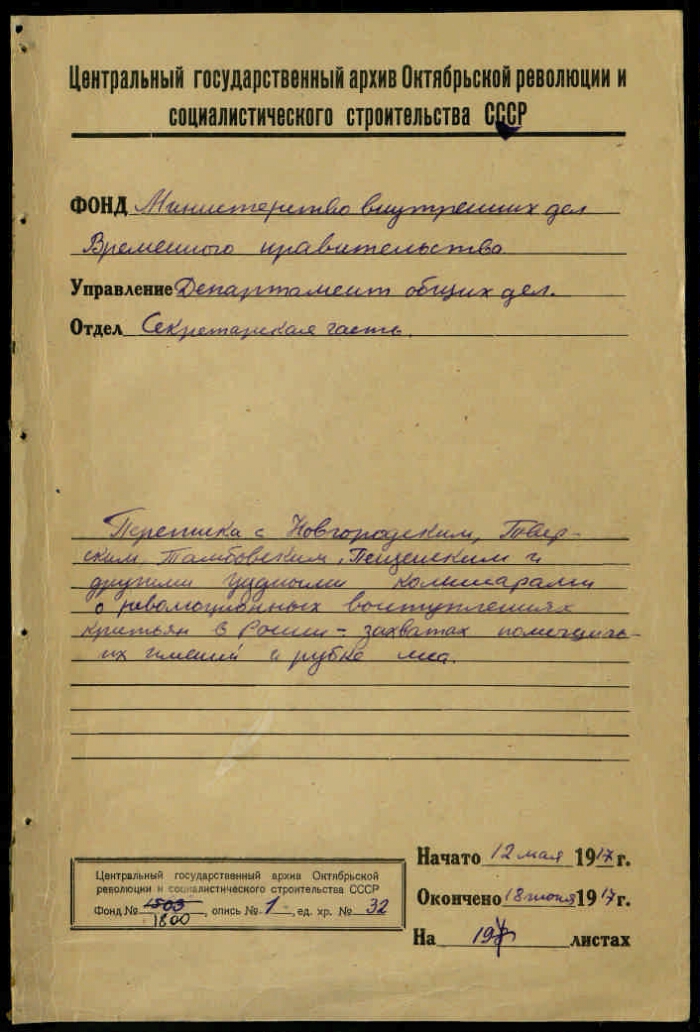 Центральный государственный архив Октябрьской революции и
социалистического строительства СССР
ФОНД Министерство внутренних дел
Временного правительства
Управление Департамент общих дел.
Отдел Секретарская часть.
Переписка с Новгородским, Твер-
ским, Тамбовским, Пензенским и
другими уездными комиссарами
о революционных выступлениях
крестьян в России – захватах помещичь-
их имений и рубке леса.
Начато 12 мая 1917 г.
Окончено 18 июня 1917 г.
На листах
Центральный государственный архив Октябрьской
революции и социалистического строительства СССР
Фонд № 1503, опись № 1, ед. хр. № 32
1800